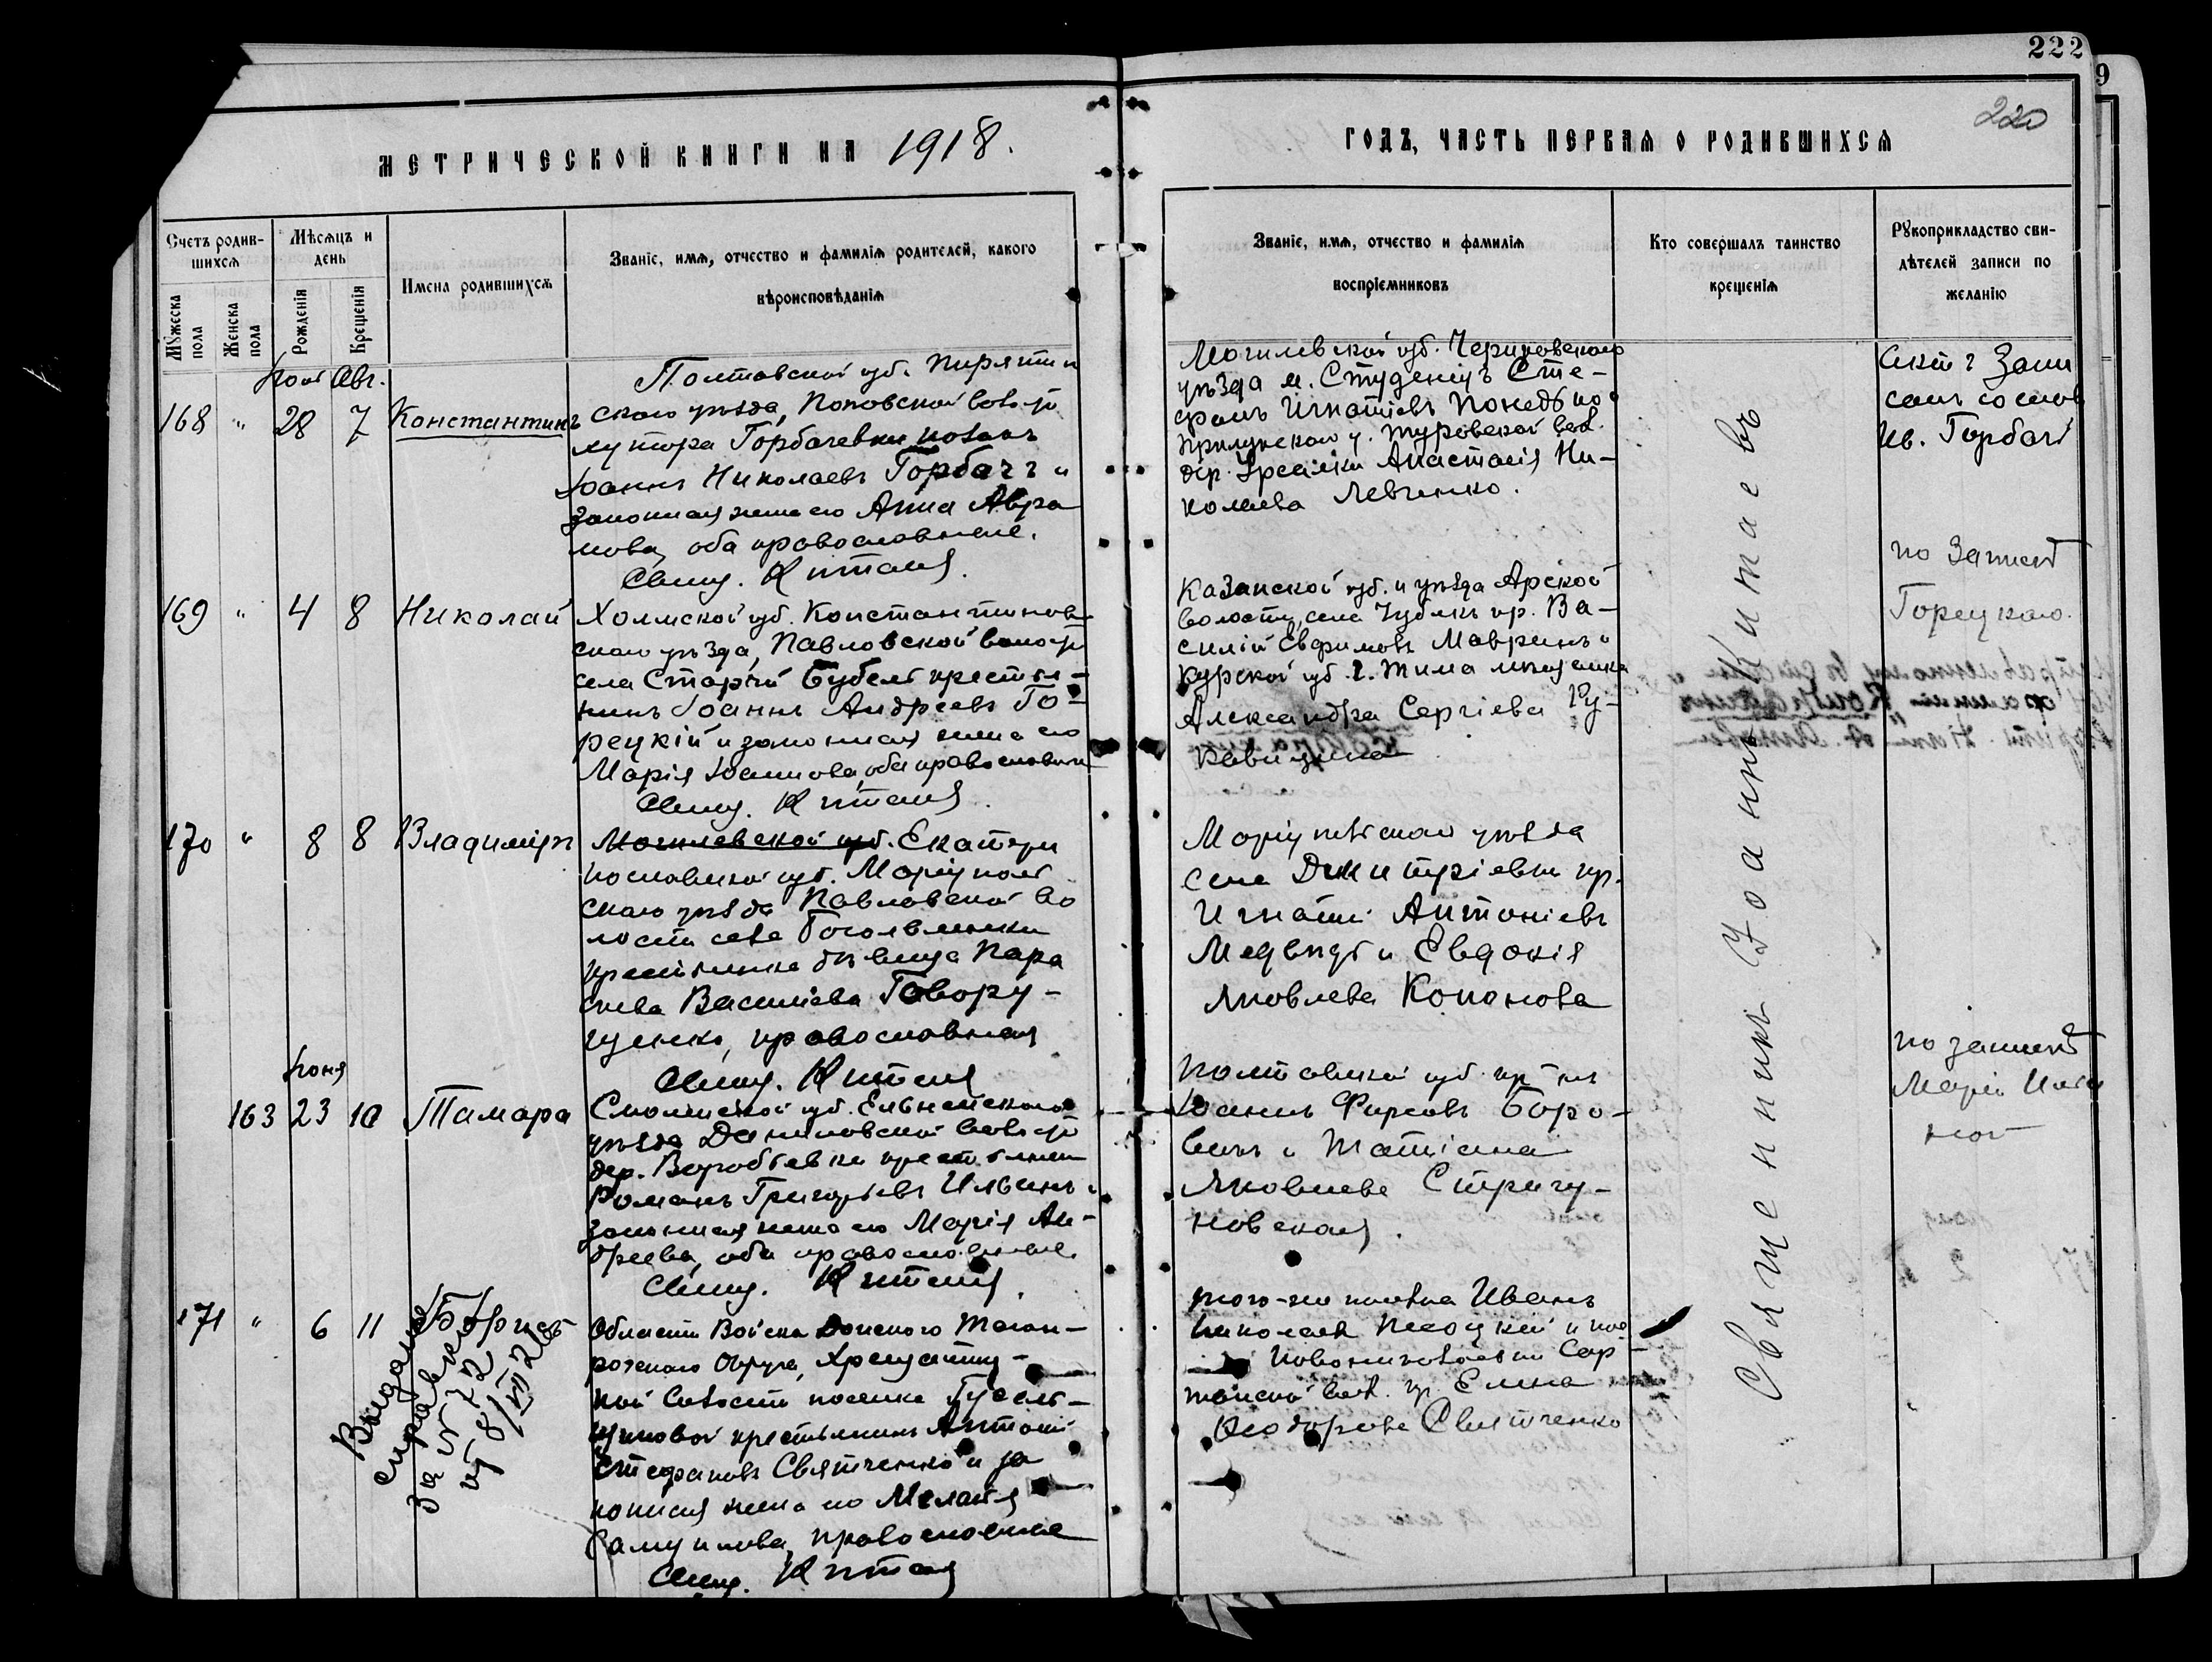 222
9
220
МЕТРИЧЕСКОЙ КНИГИ НА 1918.
ГОДЪ, ЧАСТЬ ПЕРВАЯ О РОДИВШИХСЯ
Счетъ родив-
шихся
Мѣсяцъ и
день
Мужеска
пола
Женска
пола
Рожденія
Крещенія
Имена родившихся
Званіе, имя, отчество и фамилія родителей, какого
вѣроисповѣданія
Званіе, имя, отчество и фамилія
воспріемниковъ
Кто совершалъ таинство
крещенія
Рукоприкладство сви-
дѣтелей записи по
желанію
Авг.
168 " 28 7 Константинъ
Полтавской губ. Пирятин
скаго уѣзда, Поповской волости
хутора Горбачевки козакъ
Іоаннъ Николаевъ Горбачъ и
законная жена его Анна Авра
мова, оба православные.
Свящ. Китаевъ
Могилевской губ. Чериковскаго
уѣзда м. Студенецъ Сте-
фанъ Игнатіевъ
Прилукскаго у. Туровской вол.
дер. Анастасія Ни-
колаева Левченко.
Ив. Горбачъ
169 " 4 8 Николай
Холмской губ. Константинов
скаго уѣзда, Павловской волости
села Старый Бубель крестья-
нинъ Іоаннъ Андреевъ Го-
рецкій и законная жена его
Марія Іоаннова, оба православные
Свящ. Китаевъ
Казанской губ. и уѣзда Арской
волости, села кр. Ва-
силій Евфимовъ Мавринъ и
Курской губ. г. Тима мѣщанка
Александра Сергіева
по записи
Горецкаго.
170 " 8 8 Владиміръ
Могилевской губ. Екатери
нославской губ. Маріуполь
скаго уѣзда Павловской во
лости села Богоявленки
крестьянка дѣвица Пара
скева Василіева Говору-
щенко, православная
Свящ. Китаевъ
Маріупольскаго уѣзда
села Димитріевки кр.
Игнатій Антоніевъ
Медвидь и Евдокія
Яковлева Кононова
Іюня
163 23 10 Тамара
Смоленской губ. Ельнинскаго
уѣзда Даниловской волости
дер. Воробьевки крестьянинъ
Романъ Григорьевъ Ильинъ и
законная жена его Марія Ан-
дреева, оба православные.
Свящ. Китаевъ
Полтавской губ. кр-нъ
Іоаннъ Фирсовъ Боро-
винъ и Татіана
Яковлева Стригу-
новская.
по записи
Маріи Ильи
ной
171 " 6 11 Борисъ
Выдана
справка
за № 72
8/VII 26
Области Войска Донского Таган-
рогскаго Округа,
ной волости поселка Гусель-
щиковой крестьянинъ Антоній
Стефановъ Святченко и за
конная жена его Меланія
Самуилова, православные
Свящ. Китаевъ
того-же поселка Иванъ
Николаевъ и пос.
Новониколаевки Сар-
танской вол. кр. Елена
Ѳеодорова Святченко
Священникъ Іоаннъ Китаевъ